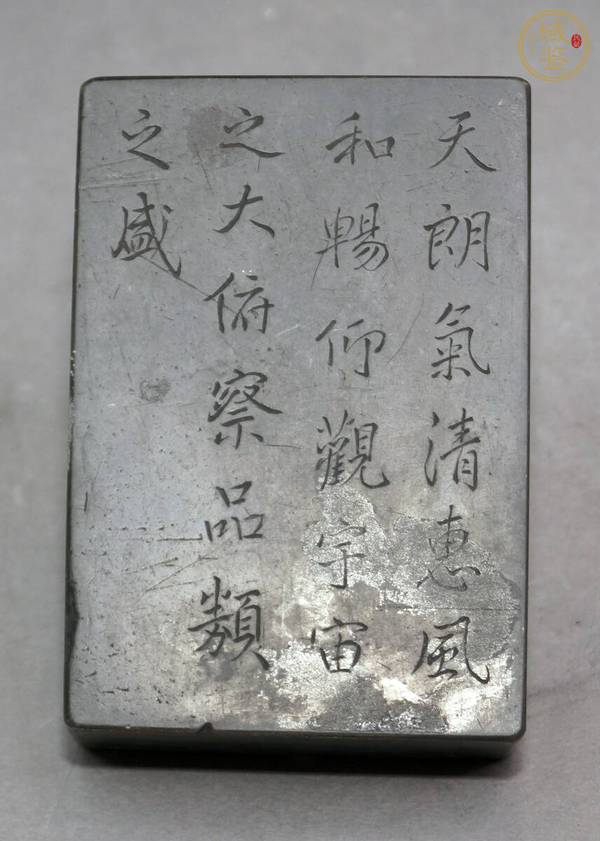 天朗氣清惠風
和暢仰觀宇宙
之大俯察品類
之盛